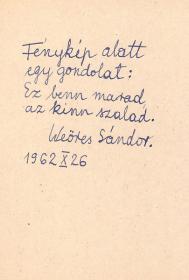 Fénykép alatt
egy gondolat:
Ez benn marad
az kinn szalad.
Weöres Sándor.
1962 X 26